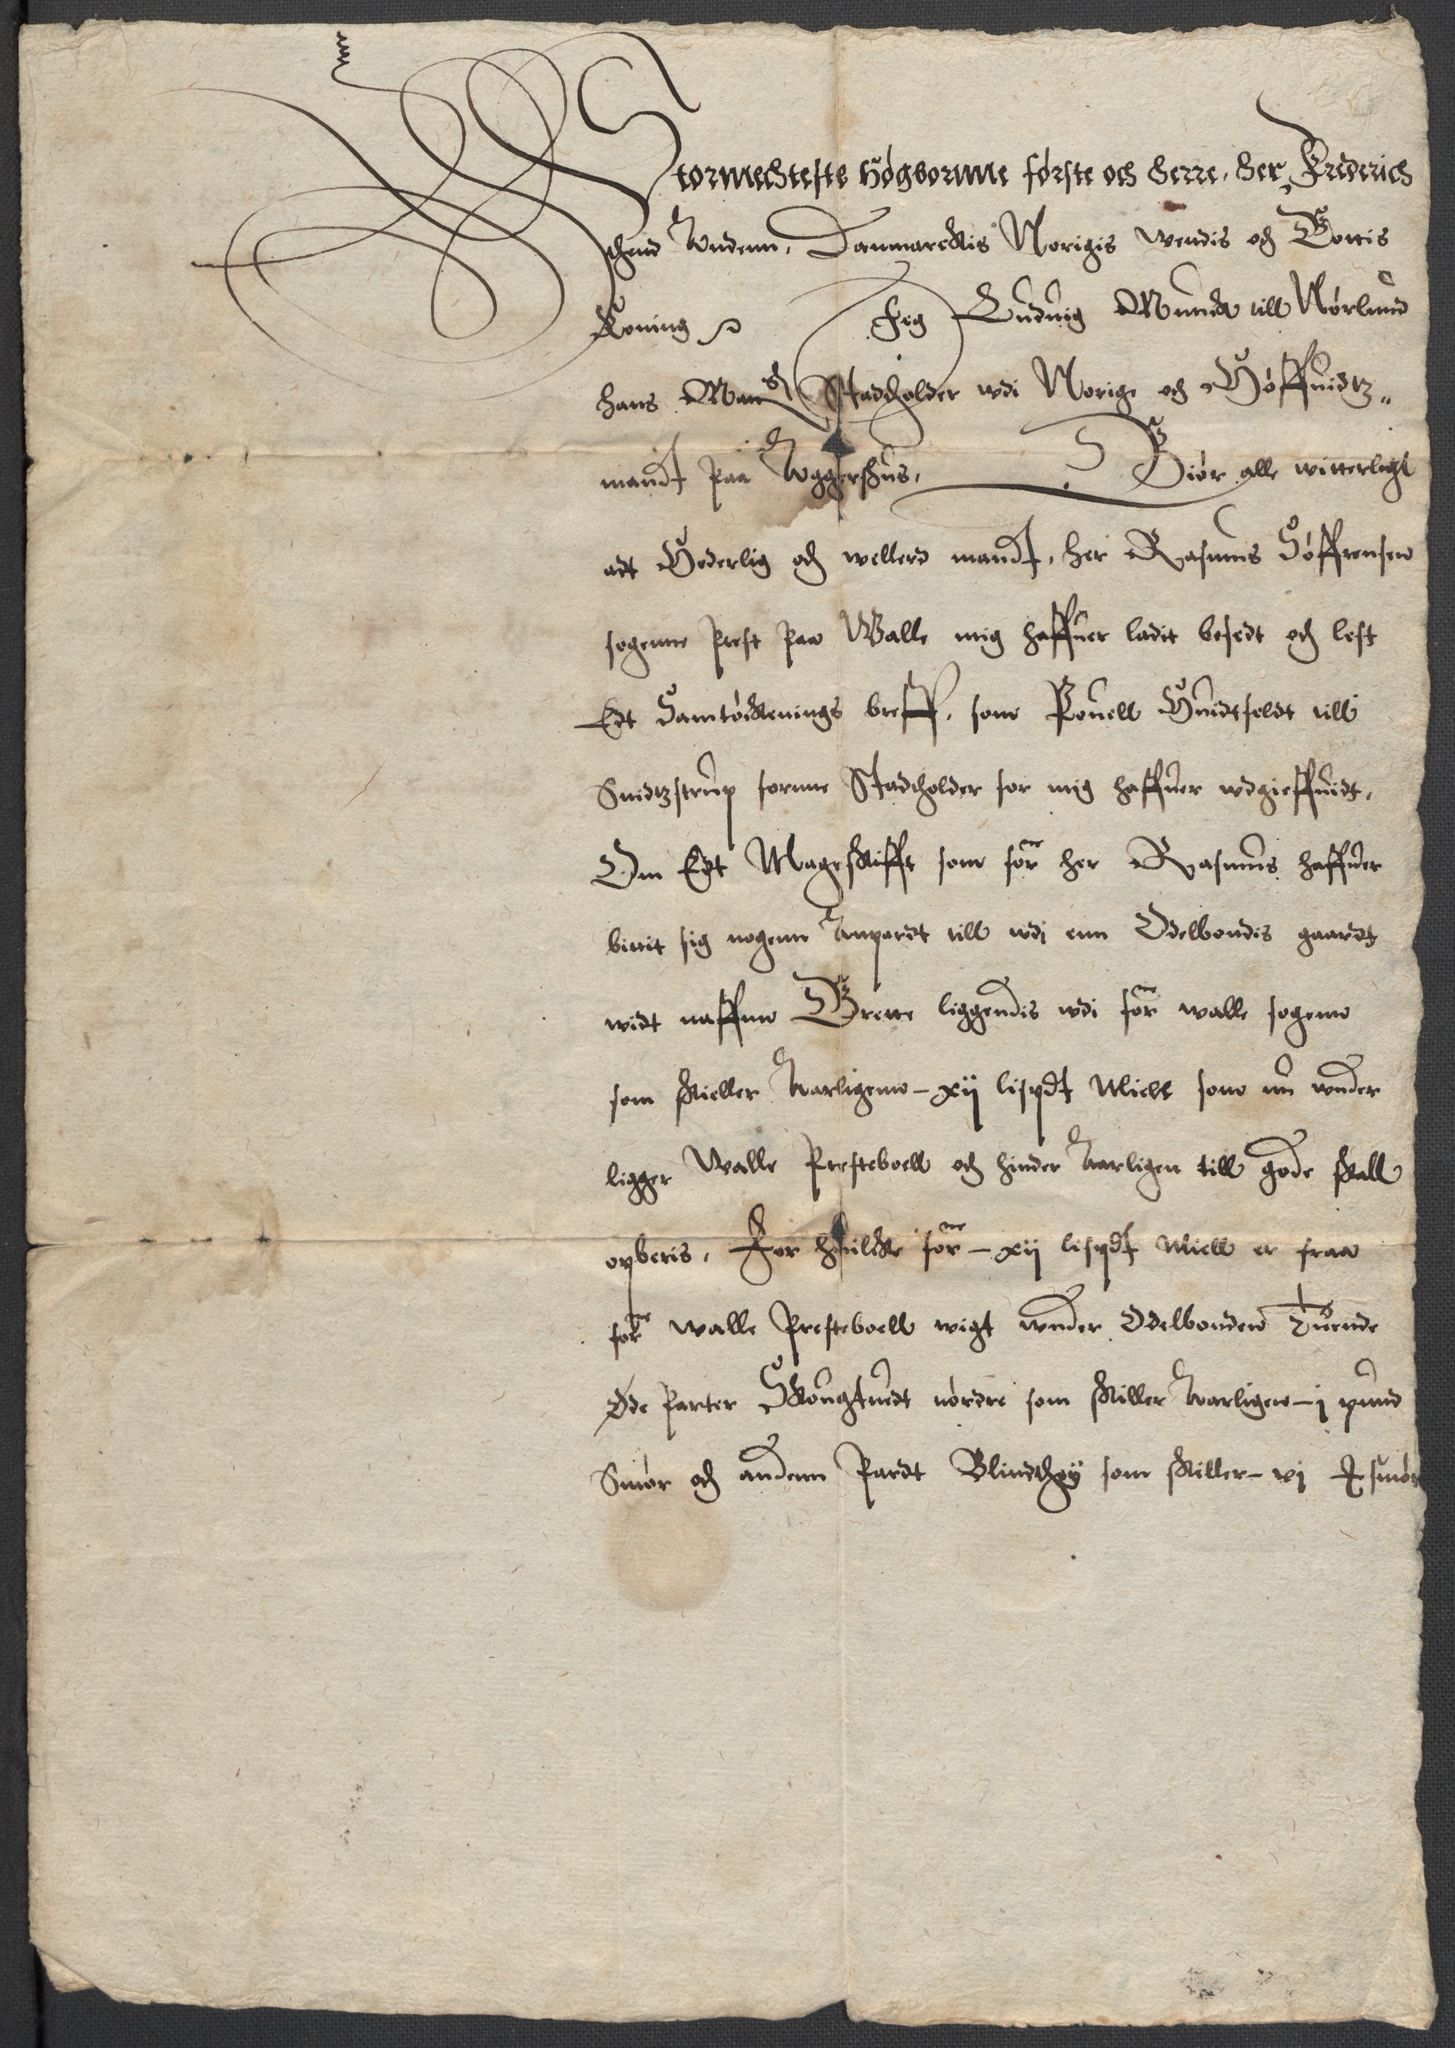 Stormechteste Høgbornne første och herre, her Frederich
thend Andenn, Danmarckis Norigis Wendis och Gottis
Koning Jeg Luduig Munck till Nørlund
hans Mayts Stadtholder wdi Norige och Høffuidtz„
mandt paa Aggershus, Giør alle witterligt
adt Hederlig och wellerd mandt, her Rasmus Søffrensen
sogenne Prest paa Walle mig haffuer ladit besedt och lest
Edt Samtøckenings breff, som Pouell Huidtfeldt till
Suidtzstrup formne Stadtholder for mig haffuer wdgieffuidt,
Om Edt Mageskifft som forne her Rasmus haffuer
bittit sig nogenn Anpardt till wdj enn Odelbondis gaardt
widt naffnn Grette liggendis wdi forne Walle sogenn
som skieller Aarligenn – xij lispdt Miell som nu wnder
ligger Walle Presteboell och hinder Aarligen till gode skall
opberis, For huilcke forne – xij lispdt Miell er fraa
forne Walle Presteboell wigt wnder Odelbonden Tuende
Øde Parter Skougtuedt nordre som skiller Aarligen – j pund
Smør och andenn Pardt Blindthøy som skiller – vj smør